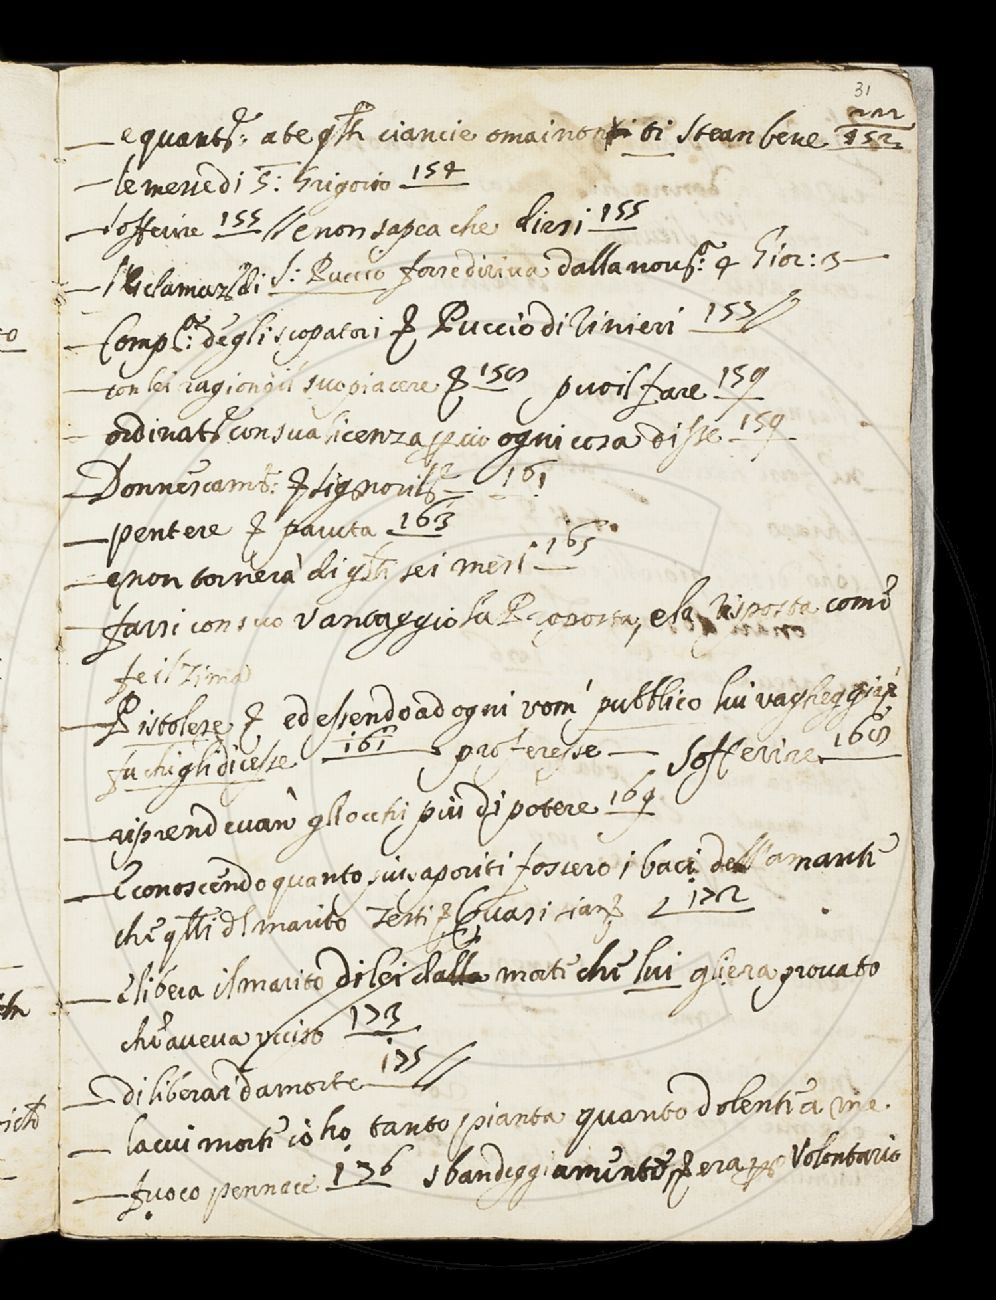 31
— e quant.º: a te q.sti ciancie omai non ti stean bene 152
— le mene di S: Grigorio 154
— soffeire 155 // e non sapea che dirsi 155
— S: Puccio forse diriva dalla nou.ª: 4 Gior: 3 —
— Comp.ª: degli scopatori Puccio di Rinieri 153 //
— con lei ragioni il suo piacere 158 puoil fare 159
— ordinat.º con sua licenza ogni cosa disse 159
— Donnescam.te: signoril 161
— pentere pauta 163
— e non tornerà di q.sti sei mesi 165
— farsi con suo vantaggio la Proposta, e la risposta come
fe il Zima
— Pistolese ed essendo ad ogni vom' pubblico lui vagheggiar
fu chi gli dicesse 161 proferesse — Sofferire 168
— riprendevan gli occhi più di potere 169
— E conoscendo quanto più saporiti fossero i baci dell'amante
che q.lli d'l marito 172
— E libera il marito di lei dalla morte che lui gliera prouato
che aueua ucciso 173
— di liberar da morte 175 //
— la cui morte io ho tanto pianta quanto dolente a me.
— fuoco pennace 176 sbandeggiamento era volontario